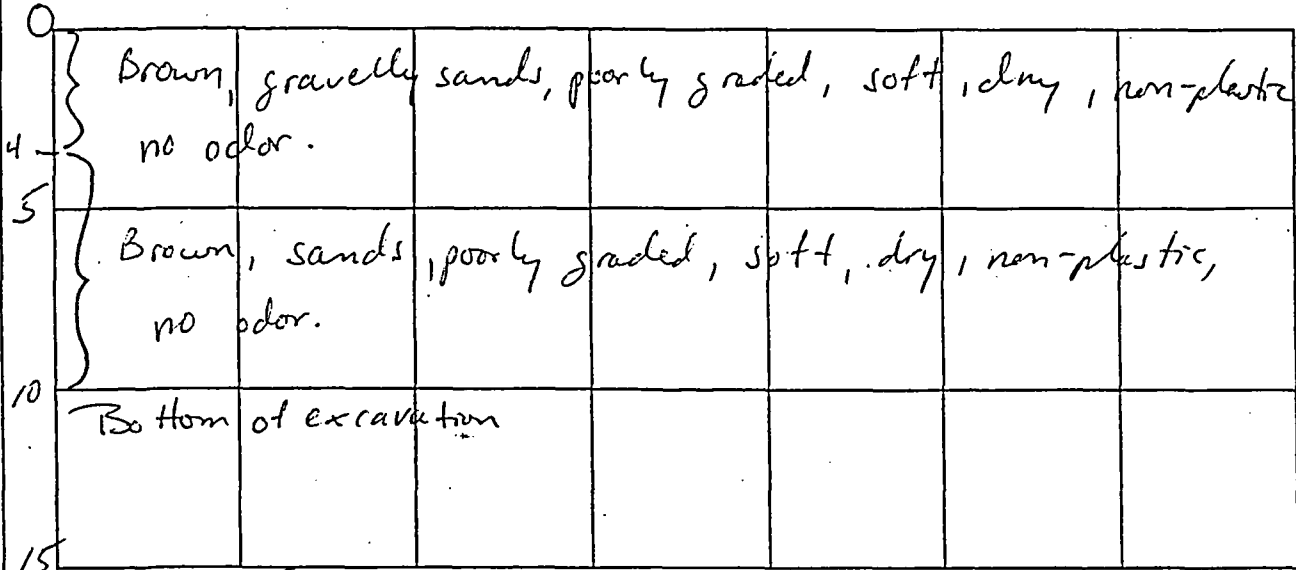 0
Brown, gravelly sands, poorly graded, soft, dry, non-plastic
no odor.
4
5
Brown, sands, poorly graded, soft, dry, non-plastic,
no odor.
10
Bottom of excavation
15